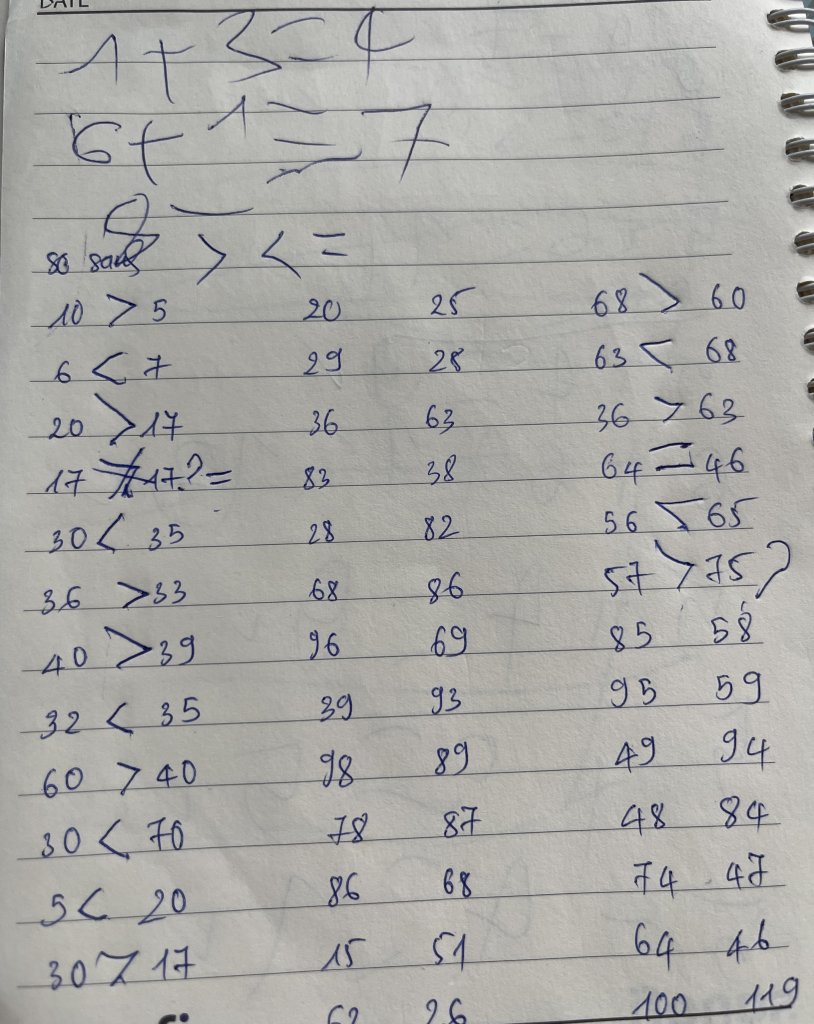 DATE
1 + 3 = 4
6 + 1 = 7
8 -
so sánh > < =
10 > 5 20 25 68 > 60
6 < 7 29 28 63 < 68
20 > 17 36 63 36 > 63
17 17? = 83 38 64 = 46
30 < 35 28 82 56 < 65
36 > 33 68 86 57 > 75?
40 > 39 96 69 85 58
32 < 35 39 93 95 59
60 > 40 98 89 49 94
30 < 70 78 87 48 84
5 < 20 86 68 74 47
30 > 17 15 51 64 46
62 26 100 119